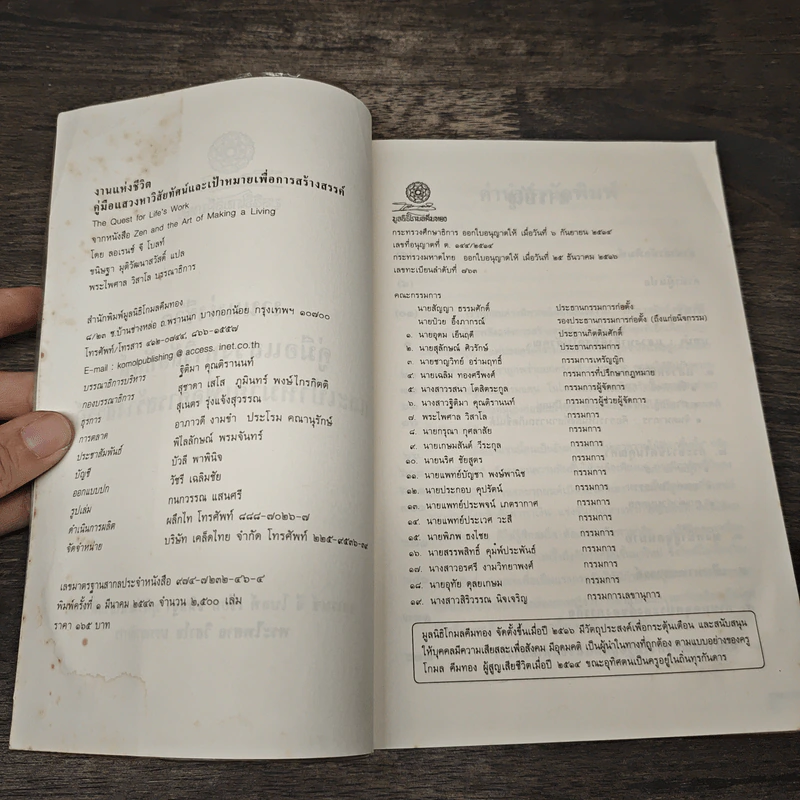 งานแห่งชีวิต
คู่มือแสวงหาวิสัยทัศน์และเป้าหมายเพื่อการสร้างสรรค์
The Quest for Life's Work
จากหนังสือ Zen and the Art of Making a Living
โดย ลอเรนซ์ จี โบลท์
ชนิษฐา มุติวัฒนาสวัสดิ์ แปล
พระไพศาล วิสาโล บรรณาธิการ
สำนักพิมพ์มูลนิธิโกมลคีมทอง
๘/๒๓ ซ.บ้านช่างหล่อ ถ.พรานนก บางกอกน้อย กรุงเทพฯ ๑๐๗๐๐
โทรศัพท์/โทรสาร ๔๑๒-๐๗๔๔, ๘๖๖-๑๕๕๗
E-mail : komolpublishing @ access. inet.co.th
บรรณาธิการบริหาร ฐิติมา คุณติรานนท์
กองบรรณาธิการ สุชาดา เสโส ภูมินทร์ พงษ์ไกรกิตติ
ธุรการ สุเนตร รุ่งแจ้งสุวรรณ
การตลาด อาภาวดี งามขำ ประโรม คณานุรักษ์
ประชาสัมพันธ์ พิไลลักษณ์ พรมจันทร์
บัญชี บัวลี พาพินิจ
ออกแบบปก วัชรี เฉลิมชัย
รูปเล่ม กนกวรรณ แสนศรี
ดำเนินการผลิต ผลึกไท โทรศัพท์ ๘๘๘-๗๐๒๖-๗
จัดจำหน่าย บริษัท เคล็ดไทย จำกัด โทรศัพท์ ๒๒๕-๙๕๓๖-๓๙
เลขมาตรฐานสากลประจำหนังสือ ๙๗๔-๗๒๓๒-๔๖-๔
พิมพ์ครั้งที่ ๑ มีนาคม ๒๕๔๓ จำนวน ๒,๕๐๐ เล่ม
ราคา ๑๖๕ บาท
มูลนิธิโกมลคีมทอง
กระทรวงศึกษาธิการ ออกใบอนุญาตให้ เมื่อวันที่ ๖ กันยายน ๒๕๑๔
เลขที่อนุญาตที่ ต. ๑๔๔/๒๕๑๔
กระทรวงมหาดไทย ออกใบอนุญาตให้ เมื่อวันที่ ๒๕ ธันวาคม ๒๕๑๖
เลขทะเบียนลำดับที่ ๗๖๓
คณะกรรมการ
นายสัญญา ธรรมศักดิ์ ประธานกรรมการก่อตั้ง
นายป๋วย อึ๊งภากรณ์ รองประธานกรรมการก่อตั้ง (ถึงแก่อนิจกรรม)
๑. นายอุดม เย็นฤดี ประธานกิตติมศักดิ์
๒. นายสุลักษณ์ ศิวรักษ์ ประธานกรรมการ
๓. นายชาญวิทย์ อร่ามฤทธิ์ กรรมการเหรัญญิก
๔. นายเฉลิม ทองศรีพงศ์ กรรมการที่ปรึกษากฎหมาย
๕. นางสาวรสนา โตสิตระกูล กรรมการผู้จัดการ
๖. นางสาวฐิติมา คุณติรานนท์ กรรมการผู้ช่วยผู้จัดการ
๗. พระไพศาล วิสาโล กรรมการ
๘. นายกรุณา กุศลาสัย กรรมการ
๙. นายเกษมสันต์ วีระกุล กรรมการ
๑๐. นายนริศ ชัยสูตร กรรมการ
๑๑. นายแพทย์บัญชา พงษ์พานิช กรรมการ
๑๒. นายประกอบ คุปรัตน์ กรรมการ
๑๓. นายแพทย์ประพจน์ เภตรากาศ กรรมการ
๑๔. นายแพทย์ประเวศ วะสี กรรมการ
๑๕. นายพิภพ ธงไชย กรรมการ
๑๖. นายสรรพสิทธิ์ คุมพ์ประพันธ์ กรรมการ
๑๗. นางสาวอรศรี งามวิทยาพงศ์ กรรมการ
๑๘. นายอุทัย ดุลยเกษม กรรมการ
๑๙. นางสาวสิริวรรณ นิจเจริญ กรรมการเลขานุการ
มูลนิธิโกมลคีมทอง จัดตั้งขึ้นเมื่อปี ๒๕๑๖ มีวัตถุประสงค์เพื่อกระตุ้นเตือน และสนับสนุน
ให้บุคคลมีความเสียสละเพื่อสังคม มีอุดมคติ เป็นผู้นำในทางที่ถูกต้อง ตามแบบอย่างของครู
โกมล คีมทอง ผู้สูญเสียชีวิตเมื่อปี ๒๕๑๔ ขณะอุทิศตนเป็นครูอยู่ในถิ่นทุรกันดาร